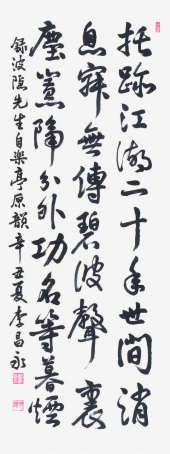 托跡江湖二十年世間消
息寂無傳碧波聲裏
塵窩隔分外功名等暮煙
錄波隱先生自樂亭原韻辛丑夏李昌永